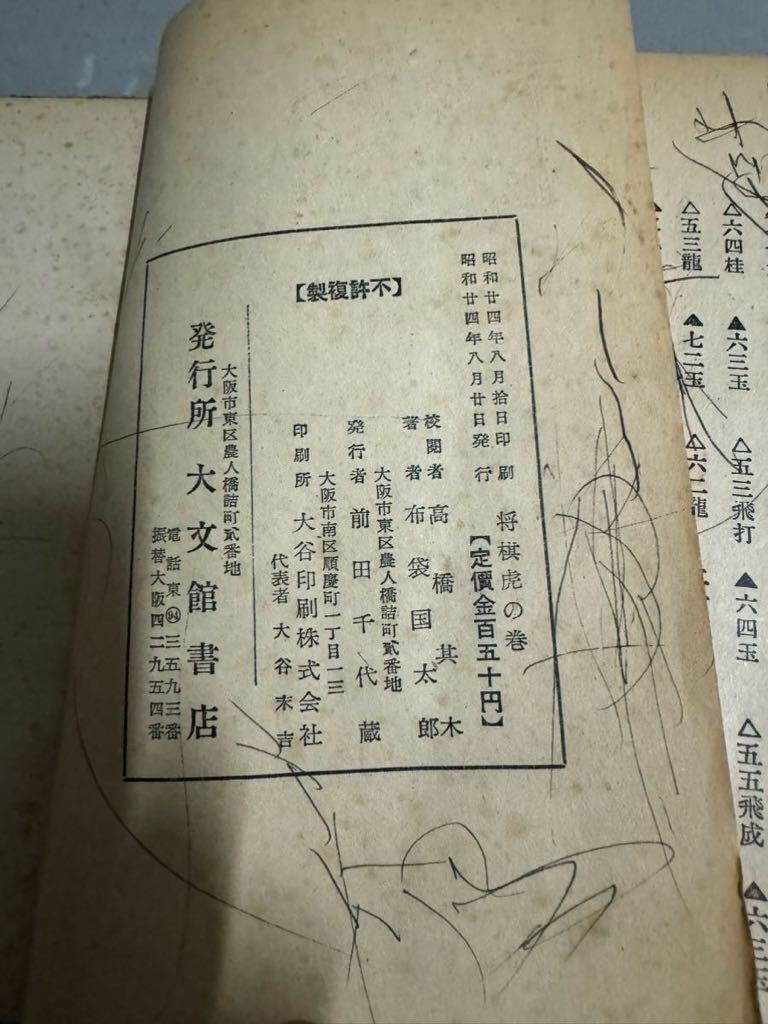 △六四桂
▲六三玉
△五三飛打
▲六四玉
△五五飛成
△五三龍
▲七二玉
△六二龍
昭和廿四年八月拾日印刷
昭和廿四年八月廿日発行
将棋虎の巻
【定價金百五十円】
校閲者 高橋其木
著者 布袋国太郎
大阪市東区農人橋詰町貳番地
発行者 前田千代蔵
大阪市南区順慶町一丁目一三
印刷所 大谷印刷株式会社
代表者 大谷末吉
【不許複製】
大阪市東区農人橋詰町貳番地
発行所 大文館書店
電話東(94)三五九三番
振替大阪四二九五四番